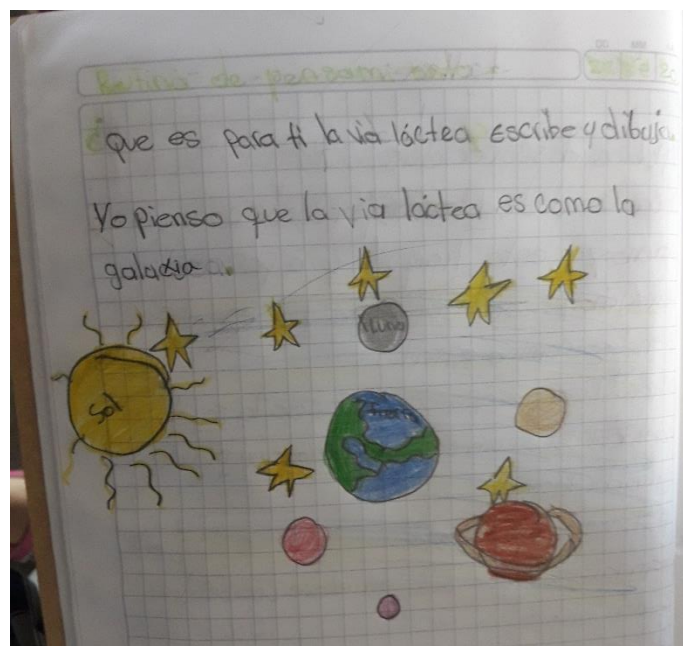 Rutina de pensamiento
¿que es para ti la via láctea escribe y dibuja
Yo pienso que la via láctea es como la
galaxia.
luna
Sol
tierra